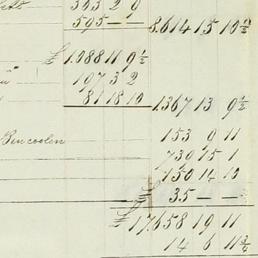 303 2 0
595 — — 8.614 15 10½
£ 1.088 11 9½
197 3 2
81 18 10 1.367 13 9½
Bencoolen 153 0 11
730 15 1
150 14 10
35 — —
£ 17,658 19 11
14 6 11¾